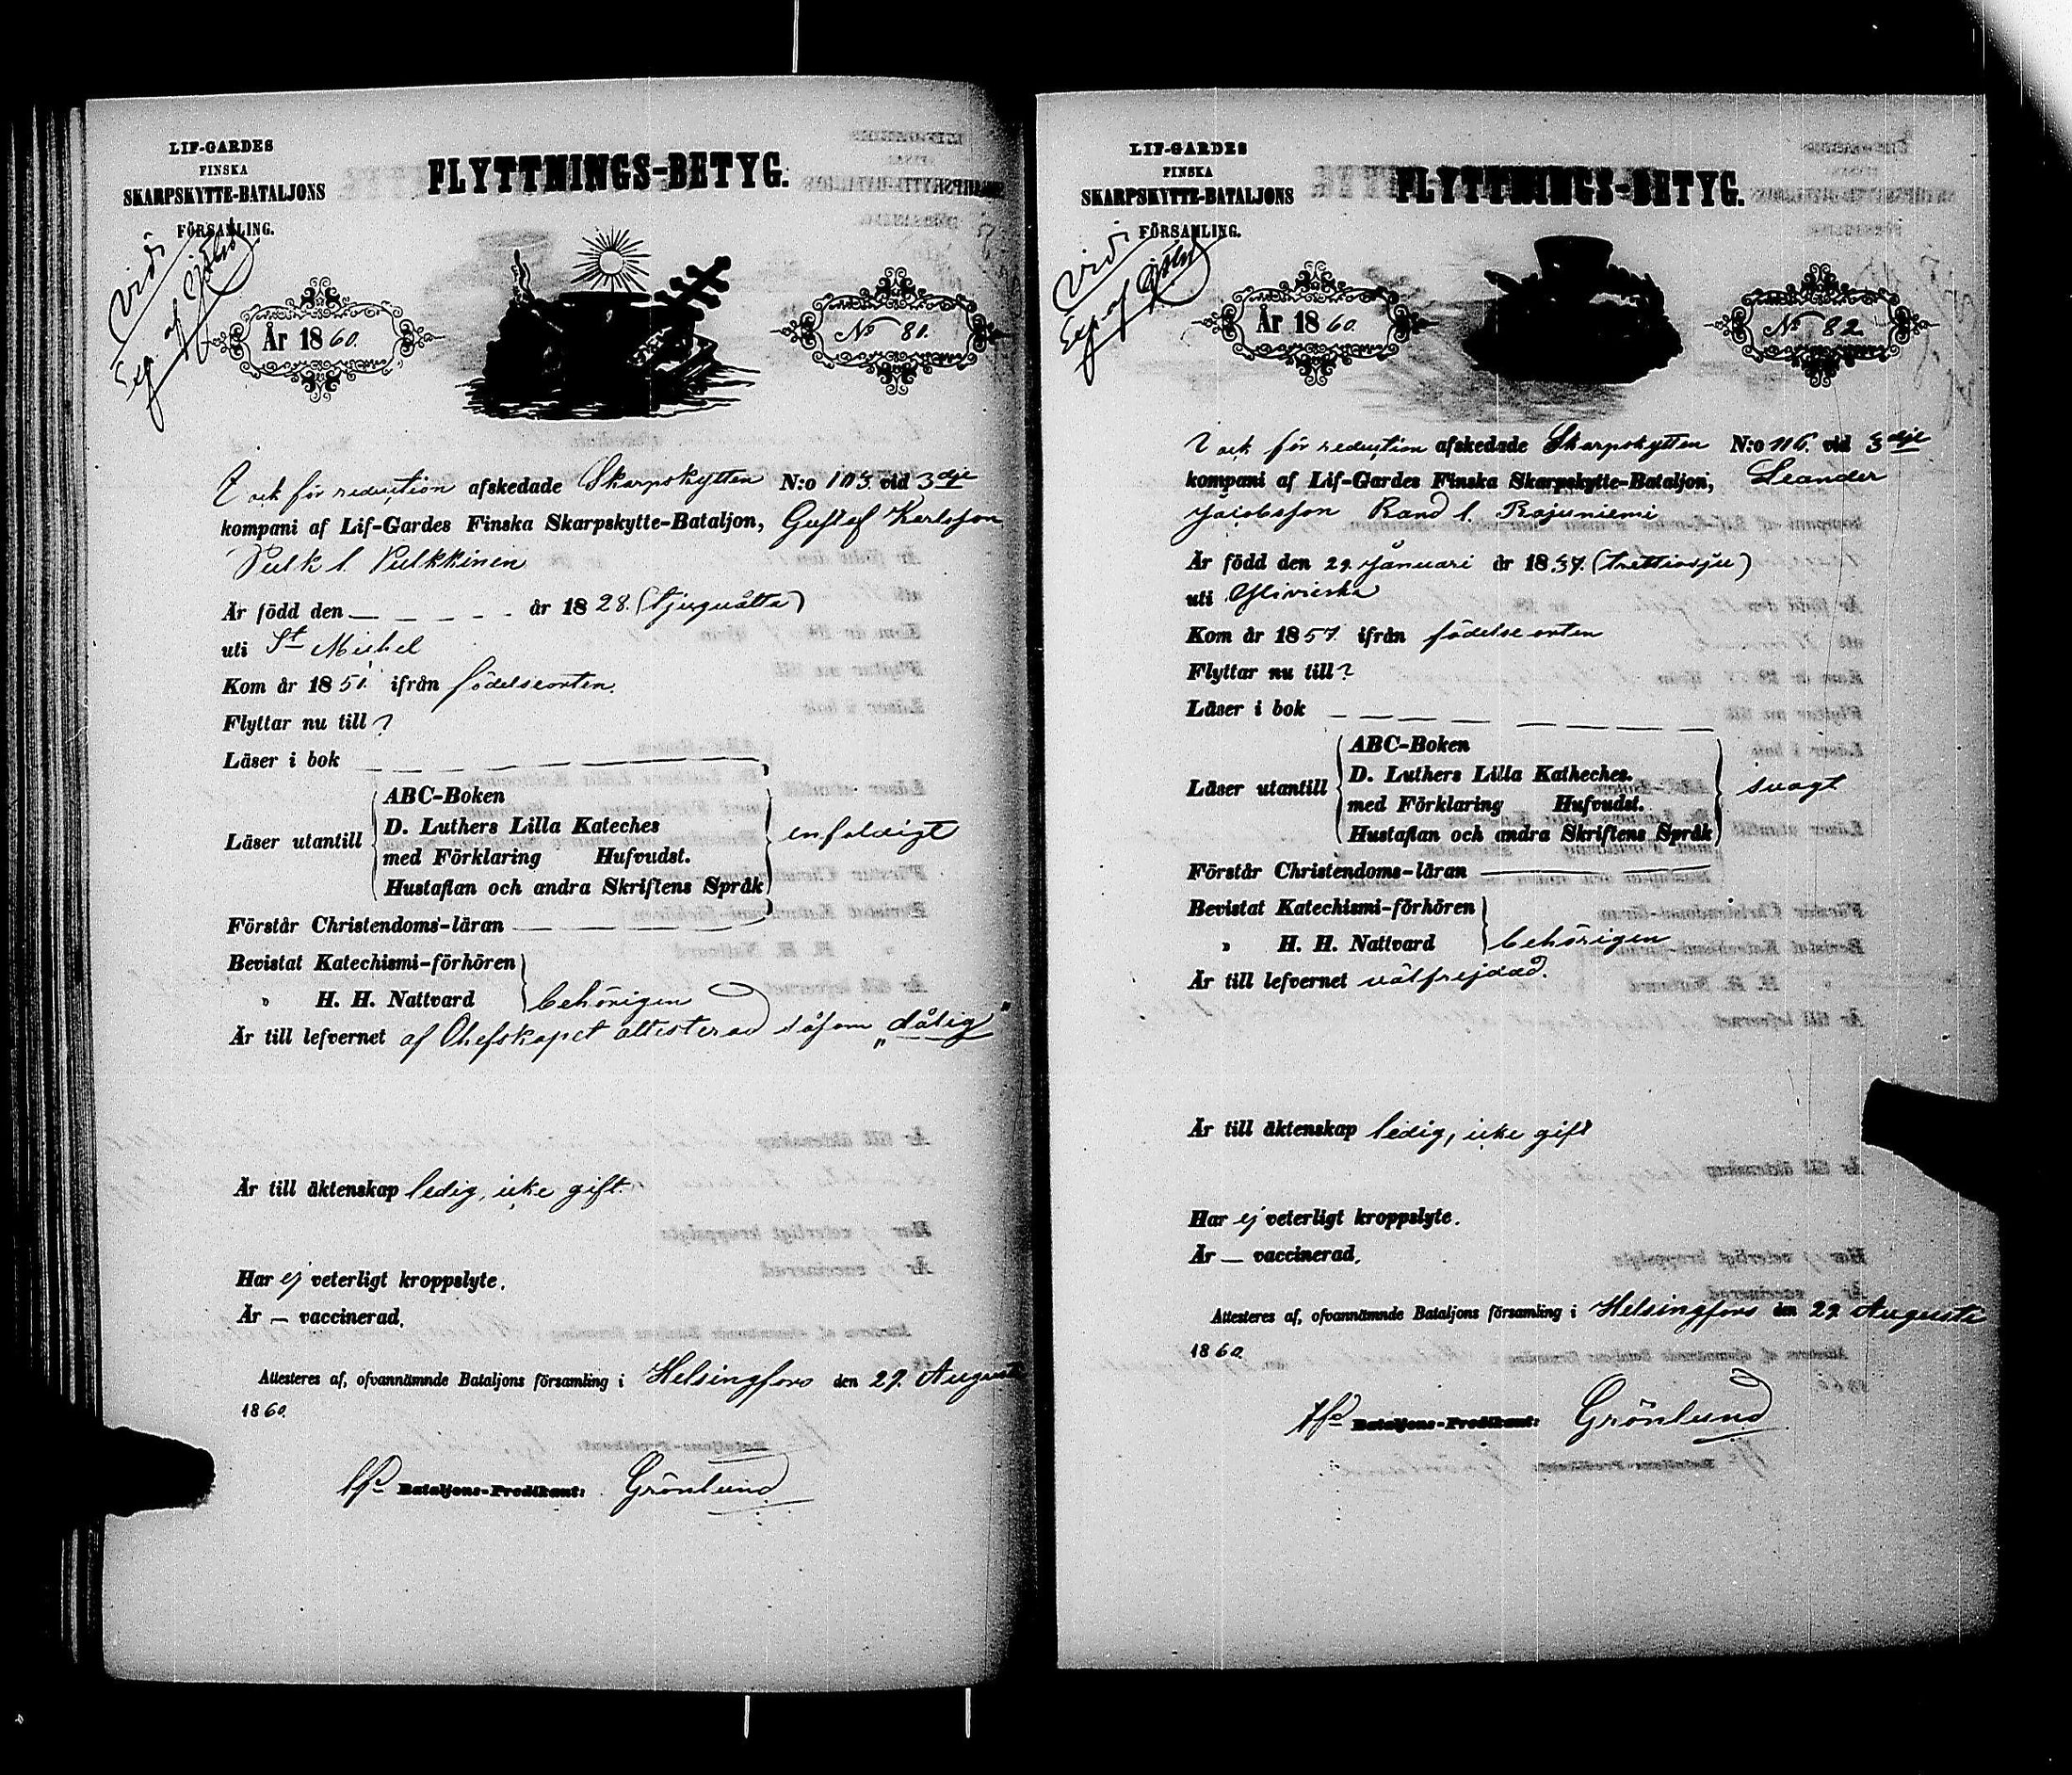 LIF-GARDES
FINSKA
SKARPSKYTTE-BATALJONS
FÖRSAMLING.
FLYTTNINGS-BETYG.
Vidi
År 1860.
No 81.
för reduction afskedade Skarpskytten N:o 103. vid 3dje
kompani af Lif-Gardes Finska Skarpskytte-Bataljon, Gustaf Karlsson
Pulk l. Pulkkinen
År född den — — — — år 1828. (tjuguåtta)
uti St Michel
Kom år 1851. ifrån födelseorten.
Flyttar nu till ?
Läser i bok
Läser utantill
ABC-Boken
D. Luthers Lilla Kateches
med Förklaring Hufvudst.
Hustaflan och andra Skriftens Språk
enfaldigt
Förstår Christendoms-läran
Bevistat Katechismi-förhören
" H. H. Nattvard
behörigen
Är till lefvernet af Chefskapet attesterad såsom „dålig"
Är till äktenskap ledig, icke gift.
Har ej veterligt kroppslyte.
Är — vaccinerad.
Attesteres af, ofvannämnde Bataljons församling i Helsingfors den 29. Augusti
1860.
Bataljons-Predikant: Grönlund
LIF-GARDES
FINSKA
SKARPSKYTTE-BATALJONS
FÖRSAMLING.
FLYTTNINGS-BETYG.
Vidi
År 1860.
No 82.
för reduction afskedade Skarpskytten N:o 116. vid 3dje
kompani af Lif-Gardes Finska Skarpskytte-Bataljon, Leander
Jacobsson Rand l. Rajuniemi
Är född den 29. Januari år 1837. (trettiosju)
uti Ylivieska
Kom år 1857. ifrån födelseorten
Flyttar nu till ?
Läser i bok
Läser utantill
ABC-Boken
D. Luthers Lilla Katheches.
med Förklaring Hufvudst.
Hustaflan och andra Skriftens Språk
svagt
Förstår Christendoms-läran
Bevistat Katechismi-förhören
" H. H. Nattvard
behörigen
Är till lefvernet välfrejdad.
Är till äktenskap ledig, icke gift
Har ej veterligt kroppslyte.
Är — vaccinerad.
Attesteres af, ofvannämnde Bataljons församling i Helsingfors den 29. Augusti
1860.
Bataljons-Predikant: Grönlund